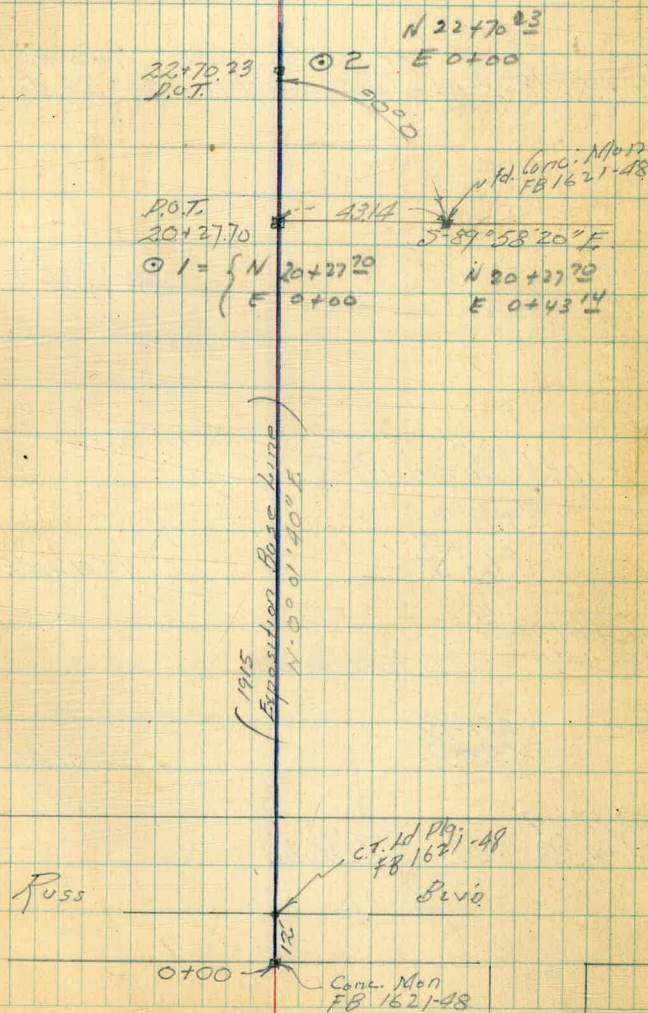 N 22+70 23
E 0+00
22+70.23
P.O.T.
⊙ 2
90°0
fd. Conc. Mon
FB 1621-48
P.O.T.
20+27.70
43.14
S-89°58'20"E
⊙ 1 = { N 20+27 70
E 0+00
N 20+27 70
E 0+43 14
(1915
Exposition Base Line)
N-0°01'40"E
C.T. Ld Plg.
FB 1621-48
Russ
Blvd.
12'
0+00
Conc. Mon
FB 1621-48